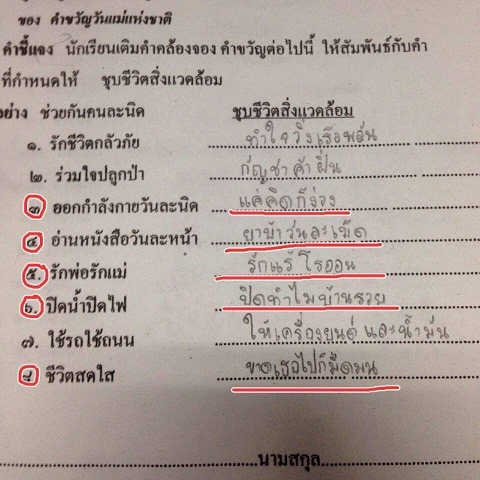 ของ คำขวัญวันแม่แห่งชาติ
คำชี้แจง นักเรียนเติมคำคล้องจอง คำขวัญต่อไปนี้ ให้สัมพันธ์กับคำ
ที่กำหนดให้ ชุบชีวิตสิ่งแวดล้อม
อย่าง ช่วยกันคนละนิด ชุบชีวิตสิ่งแวดล้อม
๑. รักชีวิตกลัวภัย ทำใจวิ่งเรือพลัน
๒. ร่วมใจปลูกป่า กัญชา ค้า ฝิ่น
๓ ออกกำลังกายวันละนิด แค่คิดก็ง่วง
๔ อ่านหนังสือวันละหน้า ยาบ้าวันละเม็ด
๕. รักพ่อรักแม่ รักแร้ โรออน
๖. ปิดน้ำปิดไฟ ปิดทำไมบ้านรวย
๗. ใช้รถใช้ถนน ให้เครื่องยนต์ และน้ำมัน
๘ ชีวิตสดใส ขาดเธอไปก็มืดมน
นามสกุล